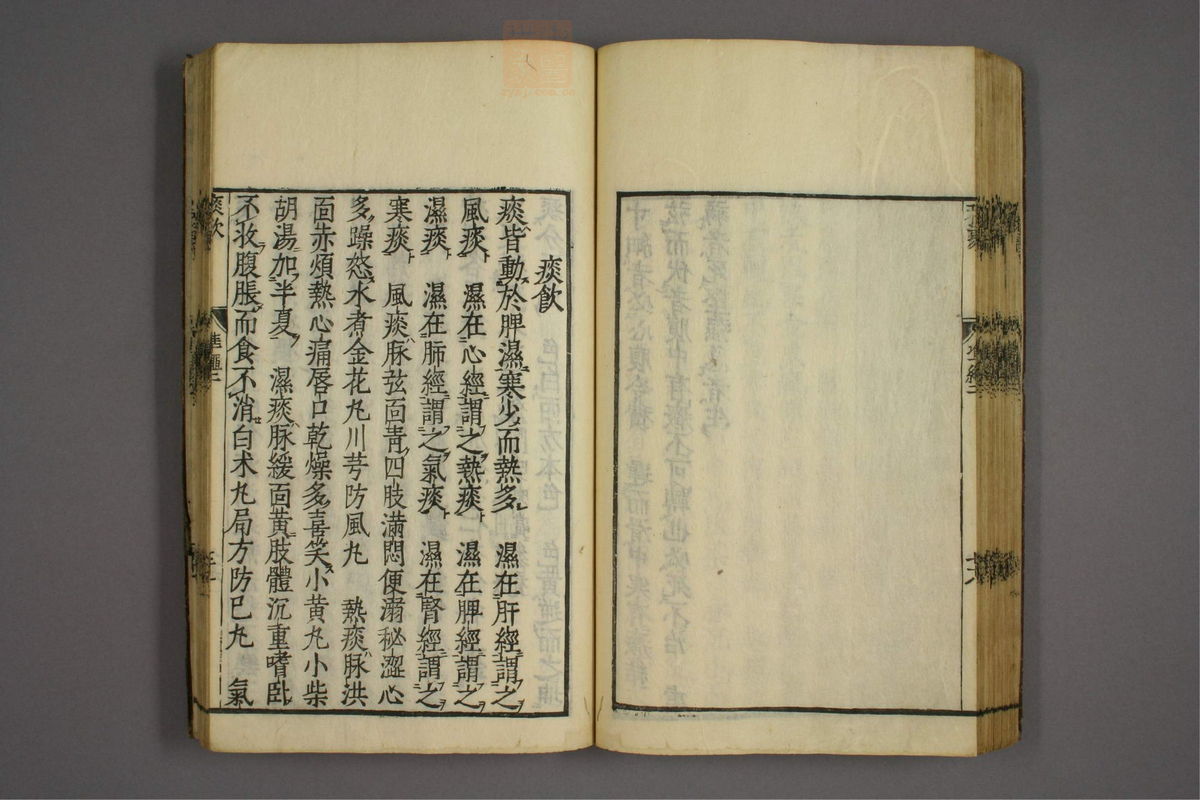 痰飲
痰皆動於脾濕寒少而熱多 濕在肝經謂之
風痰 濕在心經謂之熱痰 濕在脾經謂之
濕痰 濕在肺經謂之氣痰 濕在腎經謂之
寒痰 風痰脉弦面青四肢滿悶便溺秘澀心
多躁怒水煮金花丸川芎防風丸 熱痰脉洪
面赤煩熱心痛唇口乾燥多喜笑小黄丸小柴
胡湯加半夏 濕痰脉緩面黄肢體沉重嗜卧
不收腹脹而食不消白术丸局方防已丸 氣
痰飲